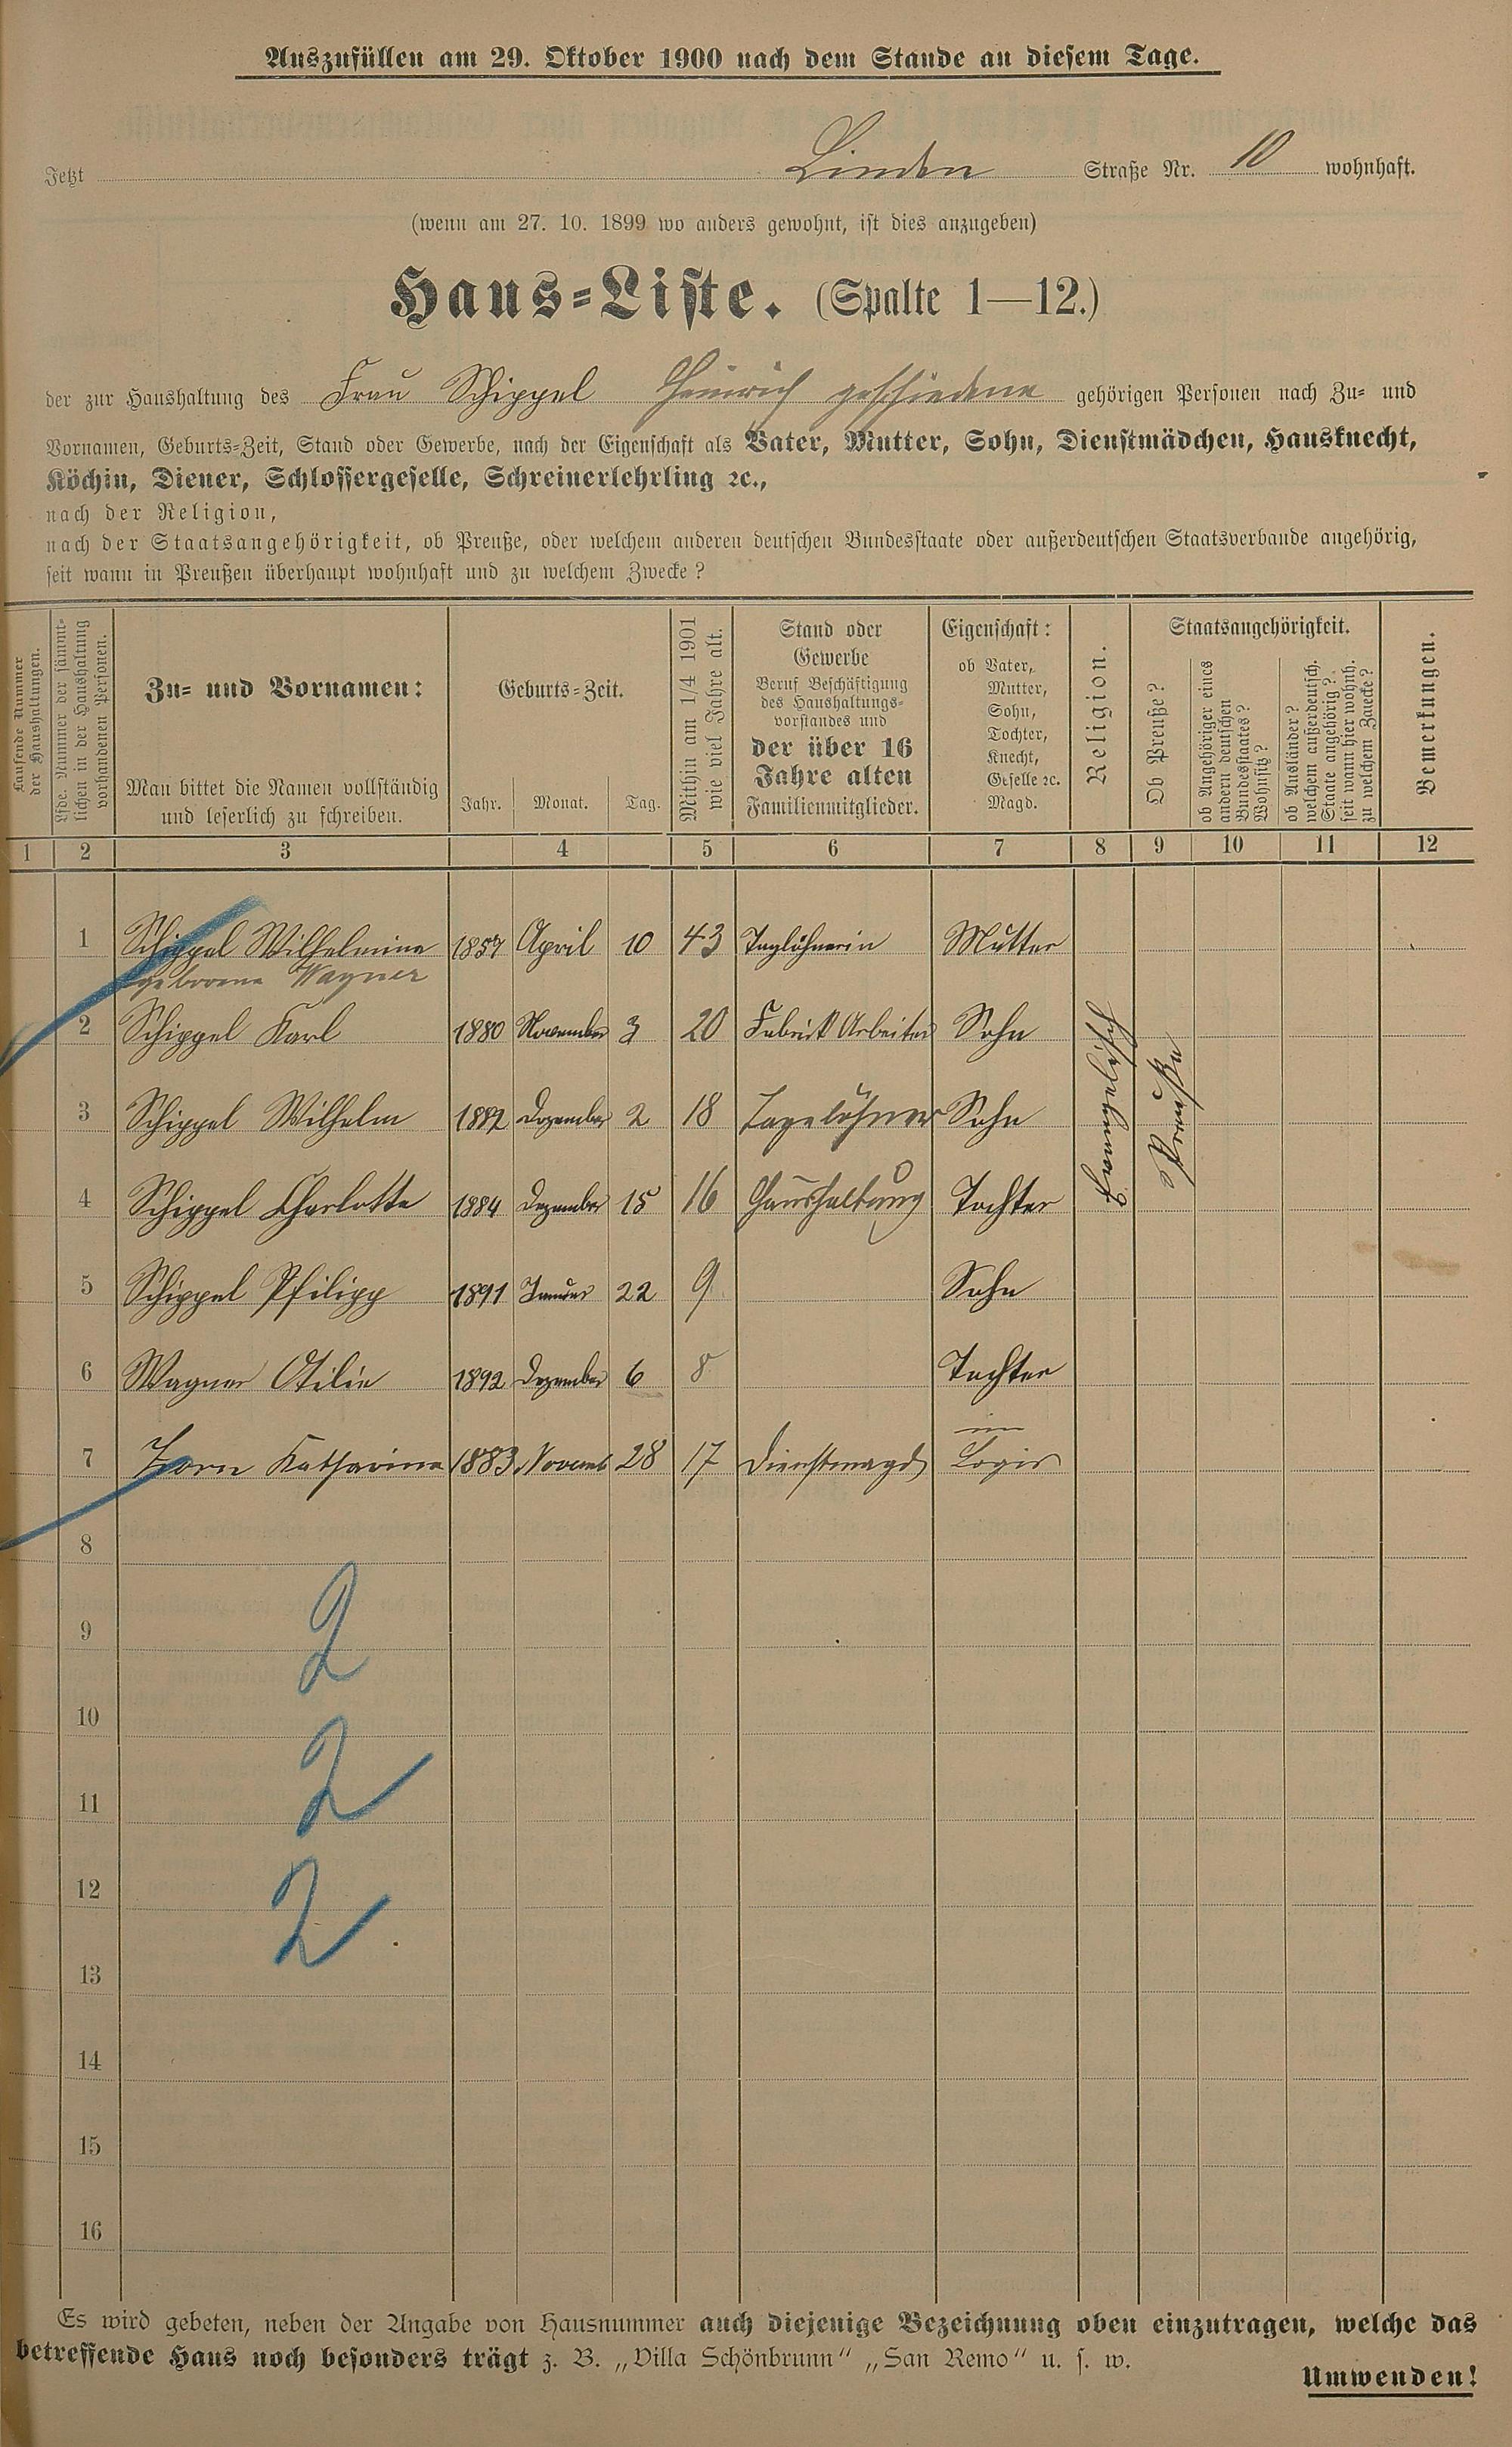 Auszufüllen am 29. Oktober 1900 nach dem Stande an diesem Tage.
Jetzt Linden Straße Nr. 10 wohnhaft.
(wenn am 27. 10. 1899 wo anders gewohnt, ist dies anzugeben)
Haus-Liste. (Spalte 1—12.)
der zur Haushaltung des Frau Schippel Heinrich geschiedene gehörigen Personen nach Zu- und
Vornamen, Geburts-Zeit, Stand oder Gewerbe, nach der Eigenschaft als Vater, Mutter, Sohn, Dienstmädchen, Hausknecht,
Köchin, Diener, Schlossergeselle, Schreinerlehrling ꝛc.,
nach der Religion,
nach der Staatsangehörigkeit, ob Preuße, oder welchem anderen deutschen Bundesstaate oder außerdeutschen Staatsverbande angehörig,
seit wann in Preußen überhaupt wohnhaft und zu welchem Zwecke?
Laufende Nummer
der Haushaltungen.
Lfde. Nummer der sämmt-
lichen in der Haushaltung
vorhandenen Personen.
Zu- und Vornamen:
Man bittet die Namen vollständig
und leserlich zu schreiben.
Geburts-Zeit.
Jahr. Monat. Tag.
Mithin am 1/4 1901
wie viel Jahre alt.
Stand oder
Gewerbe
Beruf Beschäftigung
des Haushaltungs-
vorstandes und
der über 16
Jahre alten
Familienmitglieder.
Eigenschaft:
ob Vater,
Mutter,
Sohn,
Tochter,
Knecht,
Geselle ꝛc.
Magd.
Religion.
Staatsangehörigkeit.
Ob Preuße?
ob Angehöriger eines
andern deutschen
Bundesstaates?
Wohnsitz?
ob Ausländer?
welchem außerdeutsch.
Staate angehörig?
seit wann hier wohnh.
zu welchem Zwecke?
Bemerkungen.
1 2 3 4 5 6 7 8 9 10 11 12
1 Schippel Wilhelmine 1857 April 10 43 Taglöhnerin Mutter
geborene Wagner
2 Schippel Karl 1880 November 3 20 Fabrik Arbeiter Sohn
3 Schippel Wilhelm 1882 Dezember 2 18 Tagelöhner Sohn
4 Schippel Charlotte 1884 Dezember 15 16 Haushaltung Tochter
5 Schippel Philipp 1891 Januar 22 9 Sohn
6 Wagner Otilie 1892 Dezember 6 8 Tochter
7 Zorn Katharina 1883 Novemb 28 17 Dienstmagd im
Logis
Preuße
8
9
10
11
12
13
14
15
16
2
2
2
Es wird gebeten, neben der Angabe von Hausnummer auch diejenige Bezeichnung oben einzutragen, welche das
betreffende Haus noch besonders trägt z. B. „Villa Schönbrunn“ „San Remo“ u. s. w.
Umwenden!